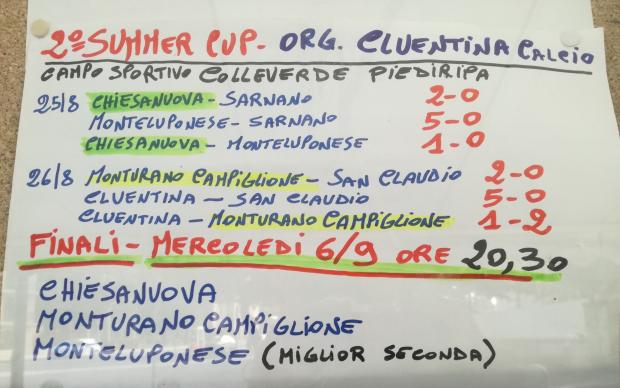 2º SUMMER CUP - ORG. CLUENTINA CALCIO
CAMPO SPORTIVO COLLEVERDE PIEDIRIPA
25/8 CHIESANUOVA - SARNANO 2-0
MONTELUPONESE - SARNANO 5-0
CHIESANUOVA - MONTELUPONESE 1-0
26/8 MONTURANO CAMPIGLIONE - SAN CLAUDIO 2-0
CLUENTINA - SAN CLAUDIO 5-0
CLUENTINA - MONTURANO CAMPIGLIONE 1-2
FINALI - MERCOLEDI 6/9 ORE 20,30
CHIESANUOVA
MONTURANO CAMPIGLIONE
MONTELUPONESE (MIGLIOR SECONDA)